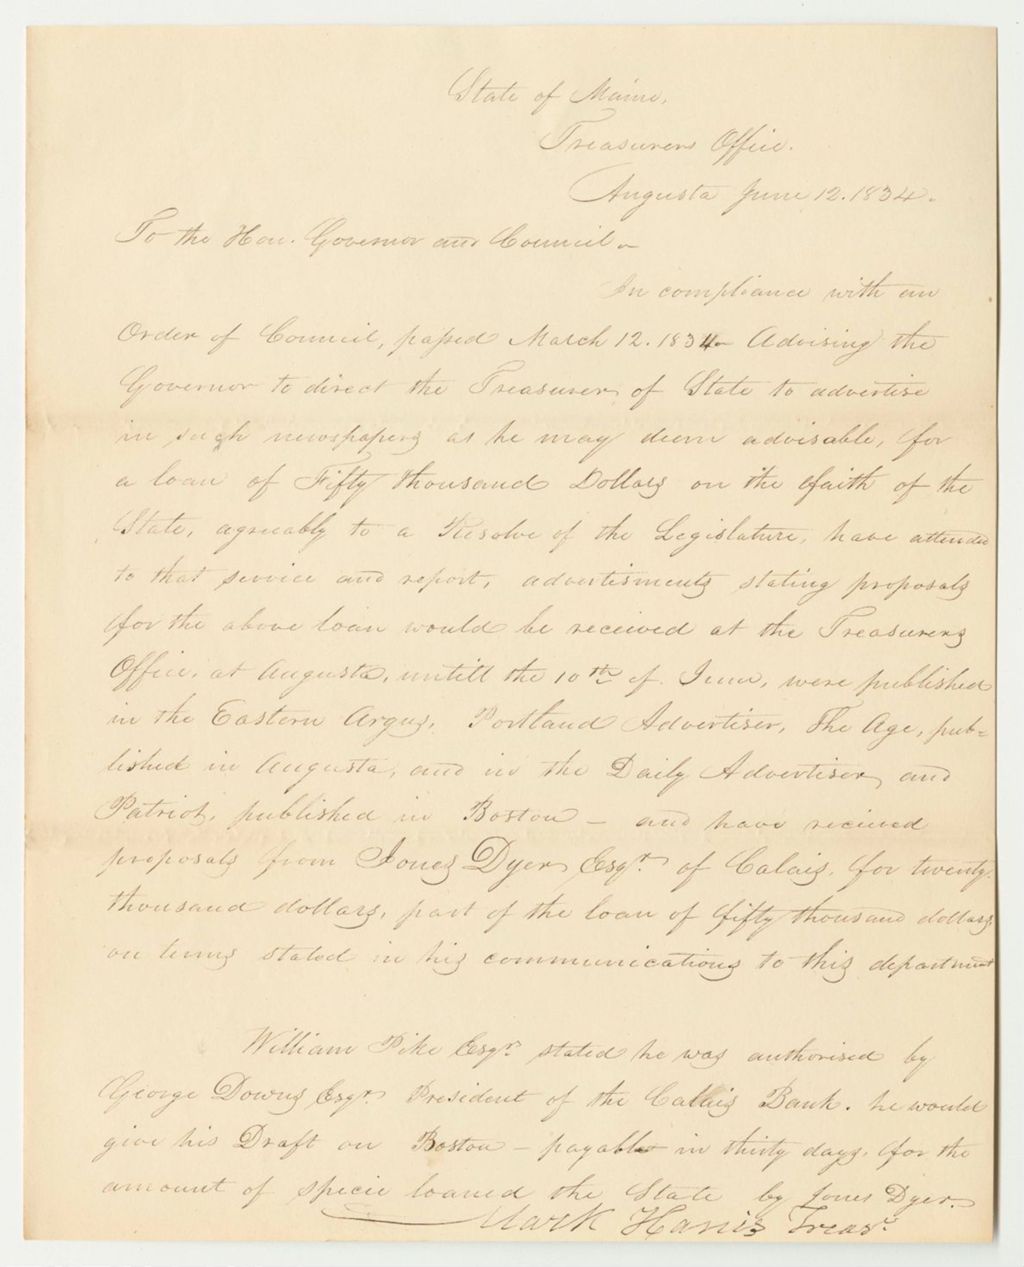 State of Maine,
Treasurers Office.
Augusta June 12. 1834.
To the Hon. Governor and Council.
In compliance with an
Order of Council, passed March 12. 1834 Advising the
Governor to direct the Treasurer of State to advertise
in such newspapers as he may deem advisable, for
a loan of Fifty thousand Dollars on the faith of the
State, agreeably to a Resolve of the Legislature, have attended
to that service and report, advertisments stating proposals
for the above loan would be received at the Treasurers
Office, at Augusta, untill the 10th of June, were published
in the Eastern Argus, Portland Advertiser, The Age, pub=
lished in Augusta, and in the Daily Advertiser, and
Patriot, published in Boston – and have recieved
proposals from Jones Dyer, Esqr. of Calais, for twenty
thousand dollars, part of the loan of fifty thousand dollars,
on terms stated in his communications to this department
William Pike Esqr. stated he was authorised by
George Downs Esqr. President of the Callais Bank. he would
give his Draft on Boston – payable in thirty days, for the
amount of specie loaned the State by Jones Dyer.
Mark Harris Treasr.